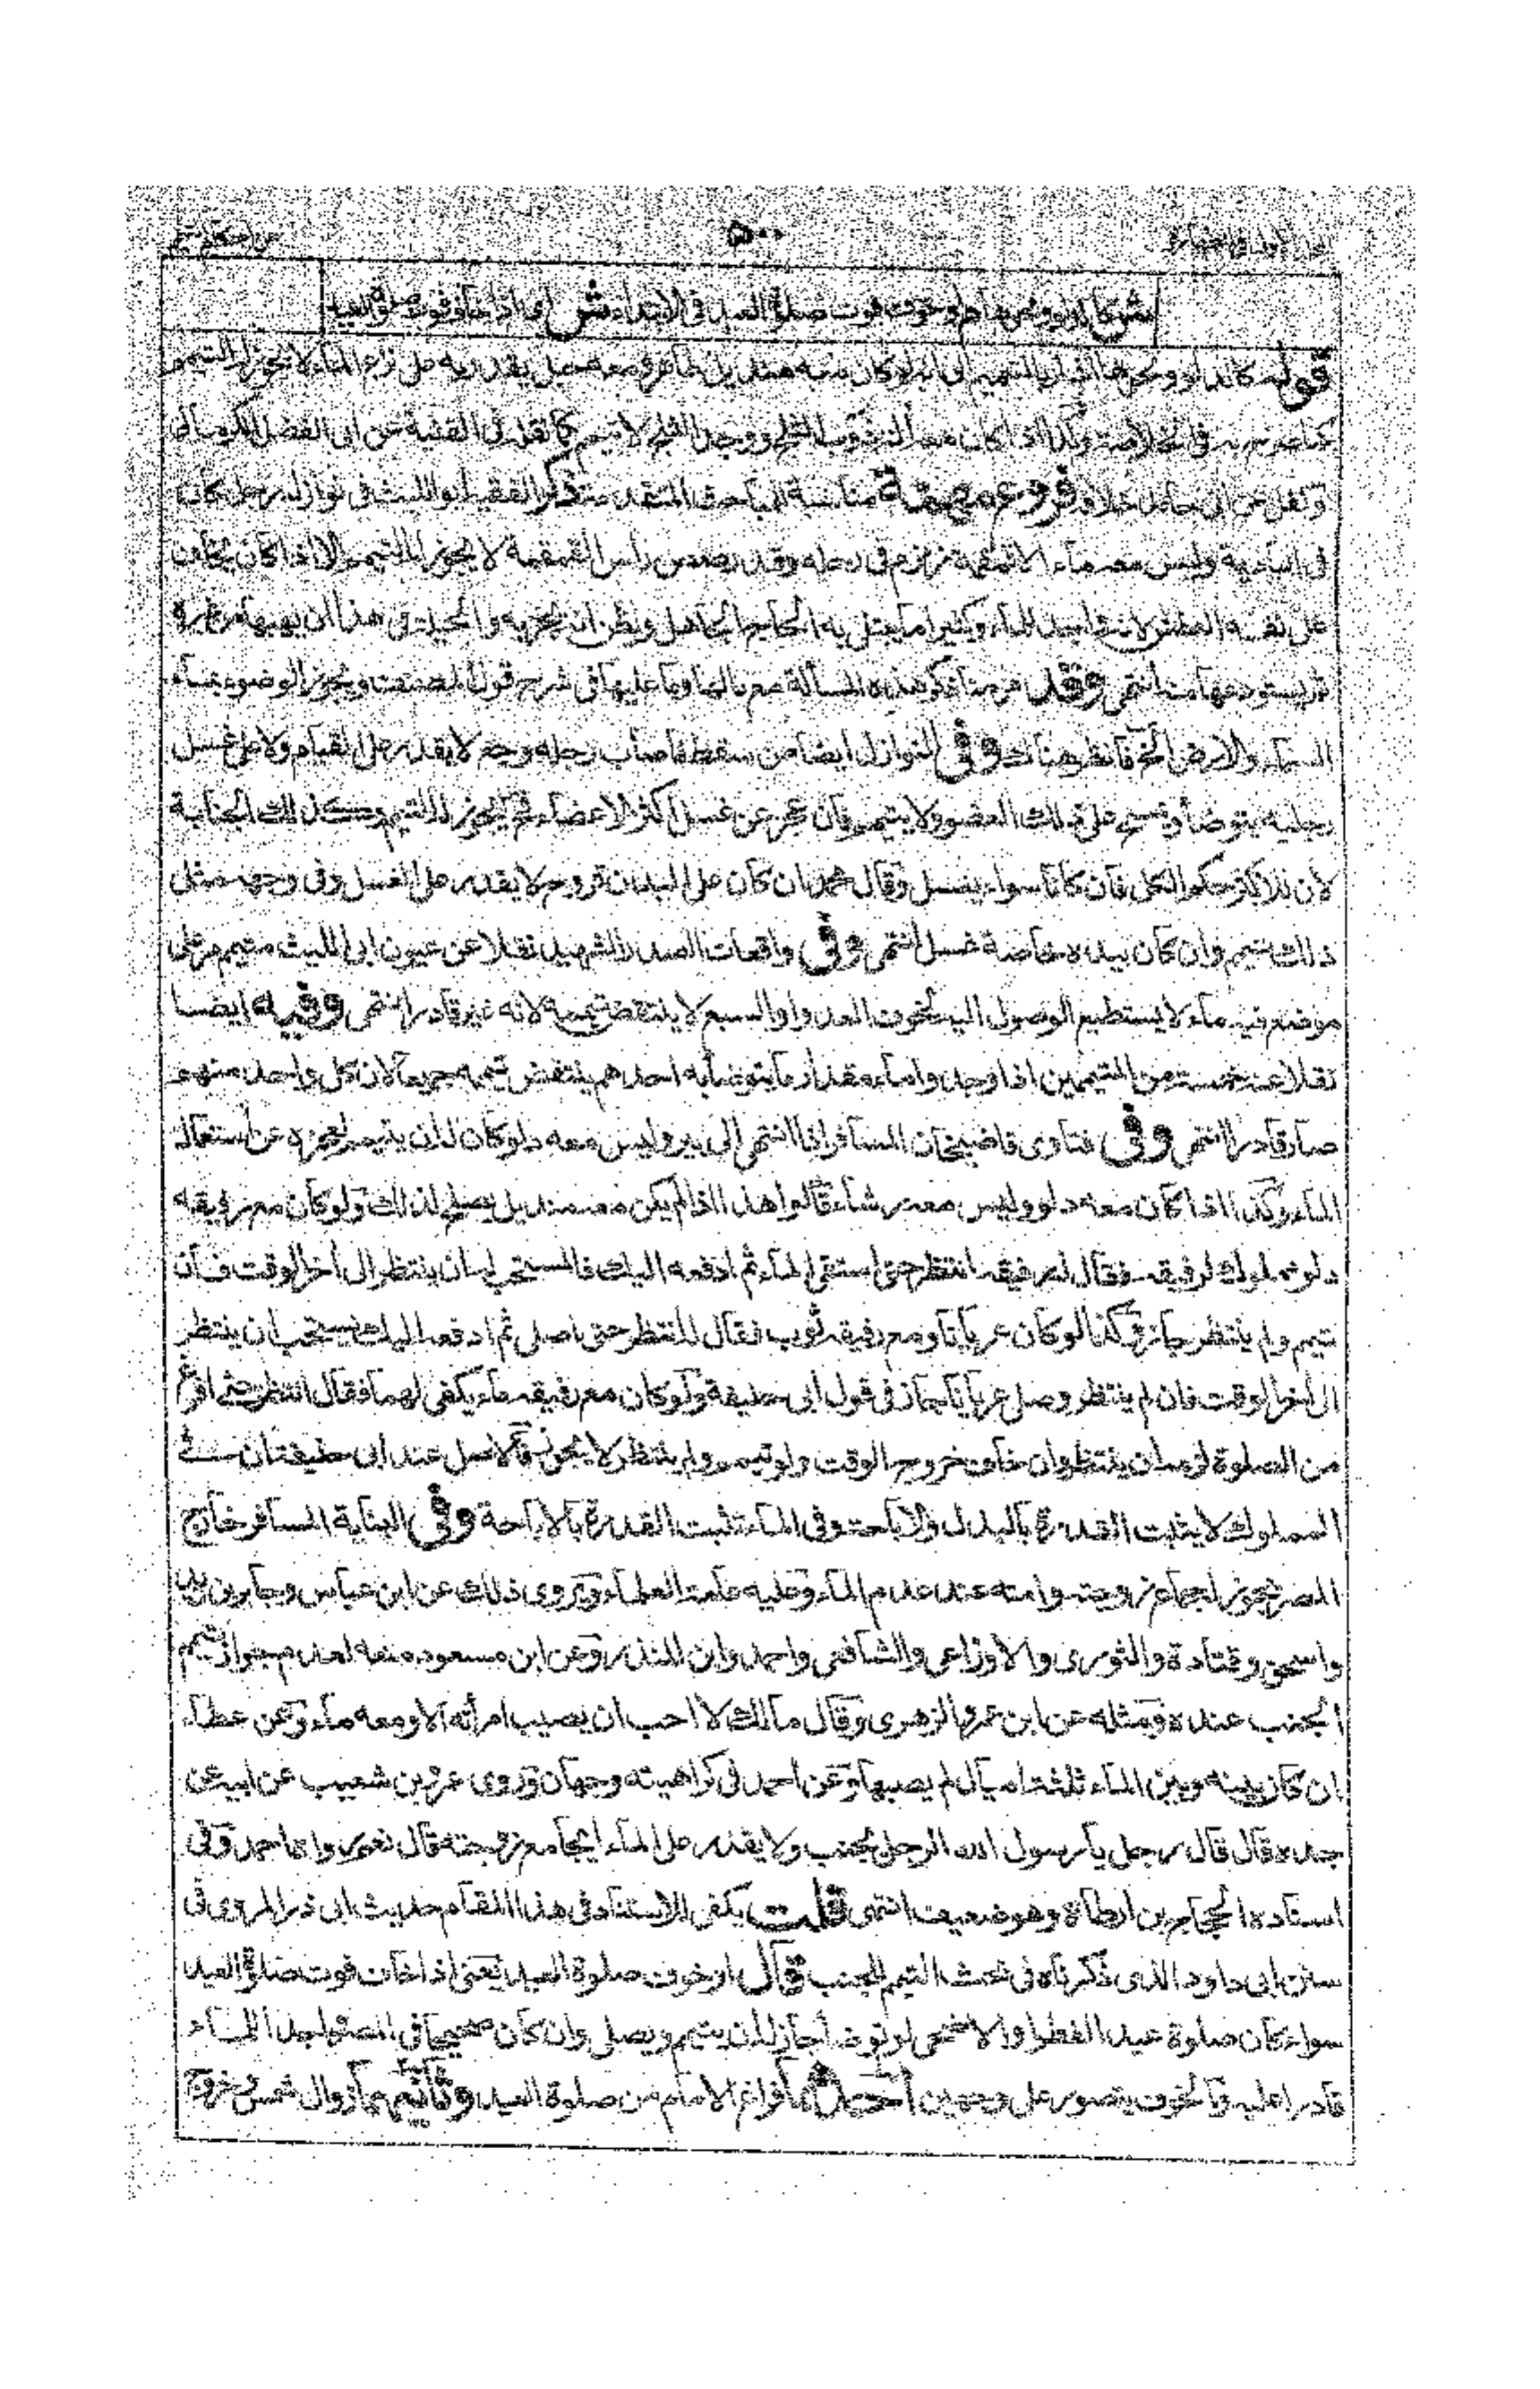 ٥٠٠
ش كالدلو ونحوها م او خوف فوت صلوة العيد في الابتداء ش اى اذا خاف فوت صلوة العيد
قوله كالدلو ونحوها اشار بالتعميم الى انه لو كان معه منديل طاهر ومعه حبل يقدر به على نزع الماء لا يجوز له التيمم
في الخلاصة وكذا اذا كان معه ووجد الثلج لا يتيمم كما نقل في القنية عن ابى الفضل الكرمانى
ونقل عن ابى حامد خلافه فروع مهمة مناسبة للمباحث المتقدمة ذكر الفقيه ابو الليث في نوازله رجل كان
في البادية وليس معه ماء الا قمقمة زمزم في رحله وقد رصص رأس القمقمة لا يجوز له التيمم الا اذا كان يخاف
على نفسه العطش لانه واجد للماء وكثيرا ما يبتلى به الحاج الجاهل ويظن انه يجزيه والحيلة في هذا ان يهبها من غيره
ثم يستودعها منه انتهى وقد مر منا ذكر هذه المسألة مع مالها وما عليها في شرح قول المصنف ويجوز الوضوء بماء
السماء والارض الخ فانظر هناك وفى النوازل ايضا من سقط فاصاب رجله وجع لا يقدر على القيام ولا على غسل
رجليه يتوضأ ويمسح على ذلك العضو ولا يتيمم فان عجز عن غسل اكثر الاعضاء ثم يجوز له التيمم وكذلك الجنابة
لان للاكثر حكم الكل فان كانا سواء يغسل وقال محمد ان كان على اليدين قروح لا يقدر على الغسل وفى وجهه مثل
ذلك تيمم وان كان بيده خاصة غسل انتهى وفى واقعات الصدر الشهيد نقلا عن عيون ابى الليث متيمم مر على
موضع فيه ماء لا يستطيع الوصول اليه لخوف العدو او السبع لا ينتقض تيممه لانه غير قادر انتهى وفيه ايضا
نقلا عنه خمسة من المتيممين اذا وجدوا ماء مقدار ما يتوضأ به احدهم ينتقض تيممهم جميعا لان كل واحد منهم
صار قادرا انتهى وفى فتاوى قاضيخان المسافر اذا انتهى الى بير وليس معه دلو كان له ان يتيمم لعجزه عن استعمال
الماء وكذا اذا كان معه دلو وليس معه رشاء قالوا هذا اذا لم يكن معه منديل يصلح لذلك ولو كان مع رفيقه
دلو مملوك لرفيقه فقال له رفيقه انتظر حتى استقى الماء ثم ادفعه اليك فالمستحب له ان ينتظر الى اخر الوقت فان
تيمم ولم ينتظر جاز وكذا لو كان عريانا ومع رفيقه ثوب فقال له انتظر حتى اصلى ثم ادفعه اليك يستحب ان ينتظر
الى اخر الوقت فان لم ينتظر وصلى عريانا جاز في قول ابى حنيفة ولو كان مع رفيقه ماء يكفى لهما فقال انتظر حتى افرغ
من الصلوة لزمه ان ينتظر وان خاف خروج الوقت ولو تيمم ولم ينتظر لا يجوز فالاصل عند ابى حنيفة ان في
المملوك لا يثبت القدرة بالبدل والاباحة وفى الماء تثبت القدرة بالاباحة وفى البناية المسافر خارج
المصر يجوز له جماع زوجته وامته عند عدم الماء وعليه عامة العلماء ويروى ذلك عن ابن عباس وجابر بن زيد
واسحق وقتادة والثورى والاوزاعى والشافعى واحمد وابن المنذر وعن ابن مسعود منعه لعدم جواز تيمم
الجنب عنده ومثله عن ابن عمر والزهرى وقال مالك لا احب ان يصيب امرأته الا ومعه ماء وعن عطاء
ان كان بينه وبين الماء ثلثة اميال لم يصبها وعن احمد في كراهيته وجهان وروى عمرو بن شعيب عن ابيه عن
جده قال قال رجل يا رسول الله الرجل يجنب ولا يقدر على الماء ايجامع زوجته قال نعم رواه احمد وفى
اسناده الحجاج بن ارطاة وهو ضعيف انتهى قلت يكفى للاستناد في هذا المقام حديث ابى ذر المروى في
سنن ابى داود الذى ذكرناه في بحث التيمم للجنب قال او خوف صلوة العيد يعنى اذا خاف فوت صلوة العيد
سواء كان صلوة عيد الفطر او الاضحى لو توضأ جاز له ان يتيمم ويصلى وان كان صحيحا في المصر واجدا للماء
قادرا عليه والخوف يتصور على وجهين احدهما فراغ الامام من صلوة العيد وثانيهما زوال شمس وخروج